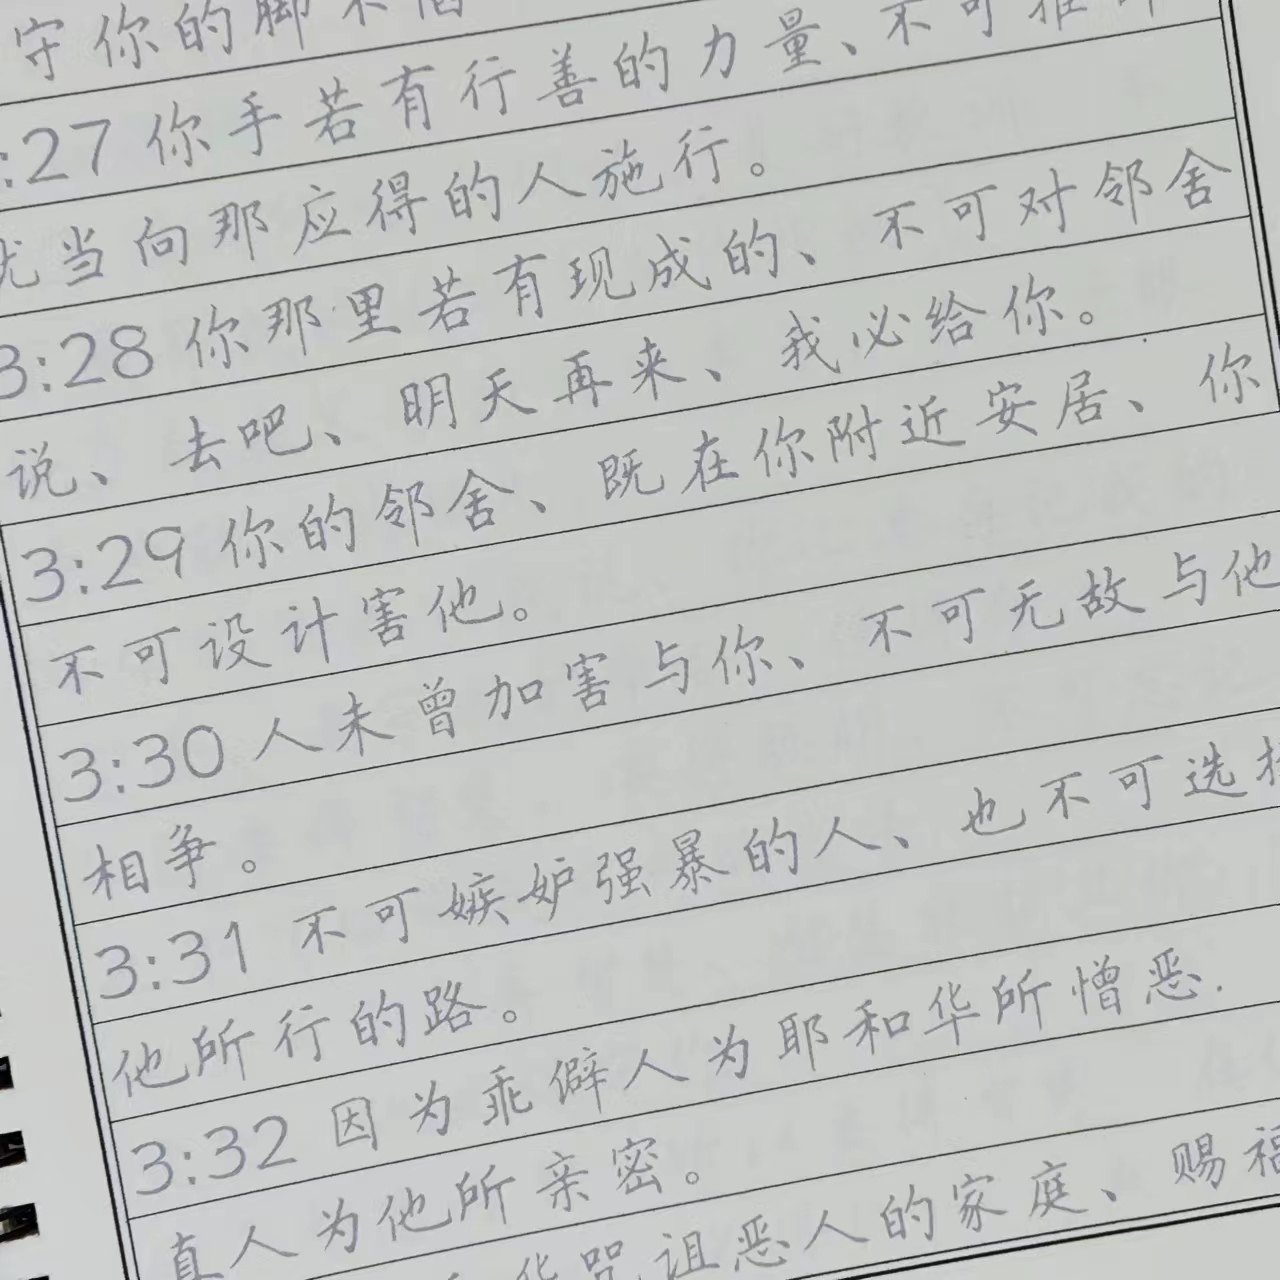 守你的脚不陷
:27 你手若有行善的力量、不可推
就当向那应得的人施行。
3:28 你那里若有现成的、不可对邻舍
说、去吧、明天再来、我必给你。
3:29 你的邻舍、既在你附近安居、你
不可设计害他。
3:30 人未曾加害与你、不可无故与他
相争。
3:31 不可嫉妒强暴的人、也不可选择
他所行的路。
3:32 因为乖僻人为耶和华所憎恶.
真人为他所亲密。
华咒诅恶人的家庭、赐福